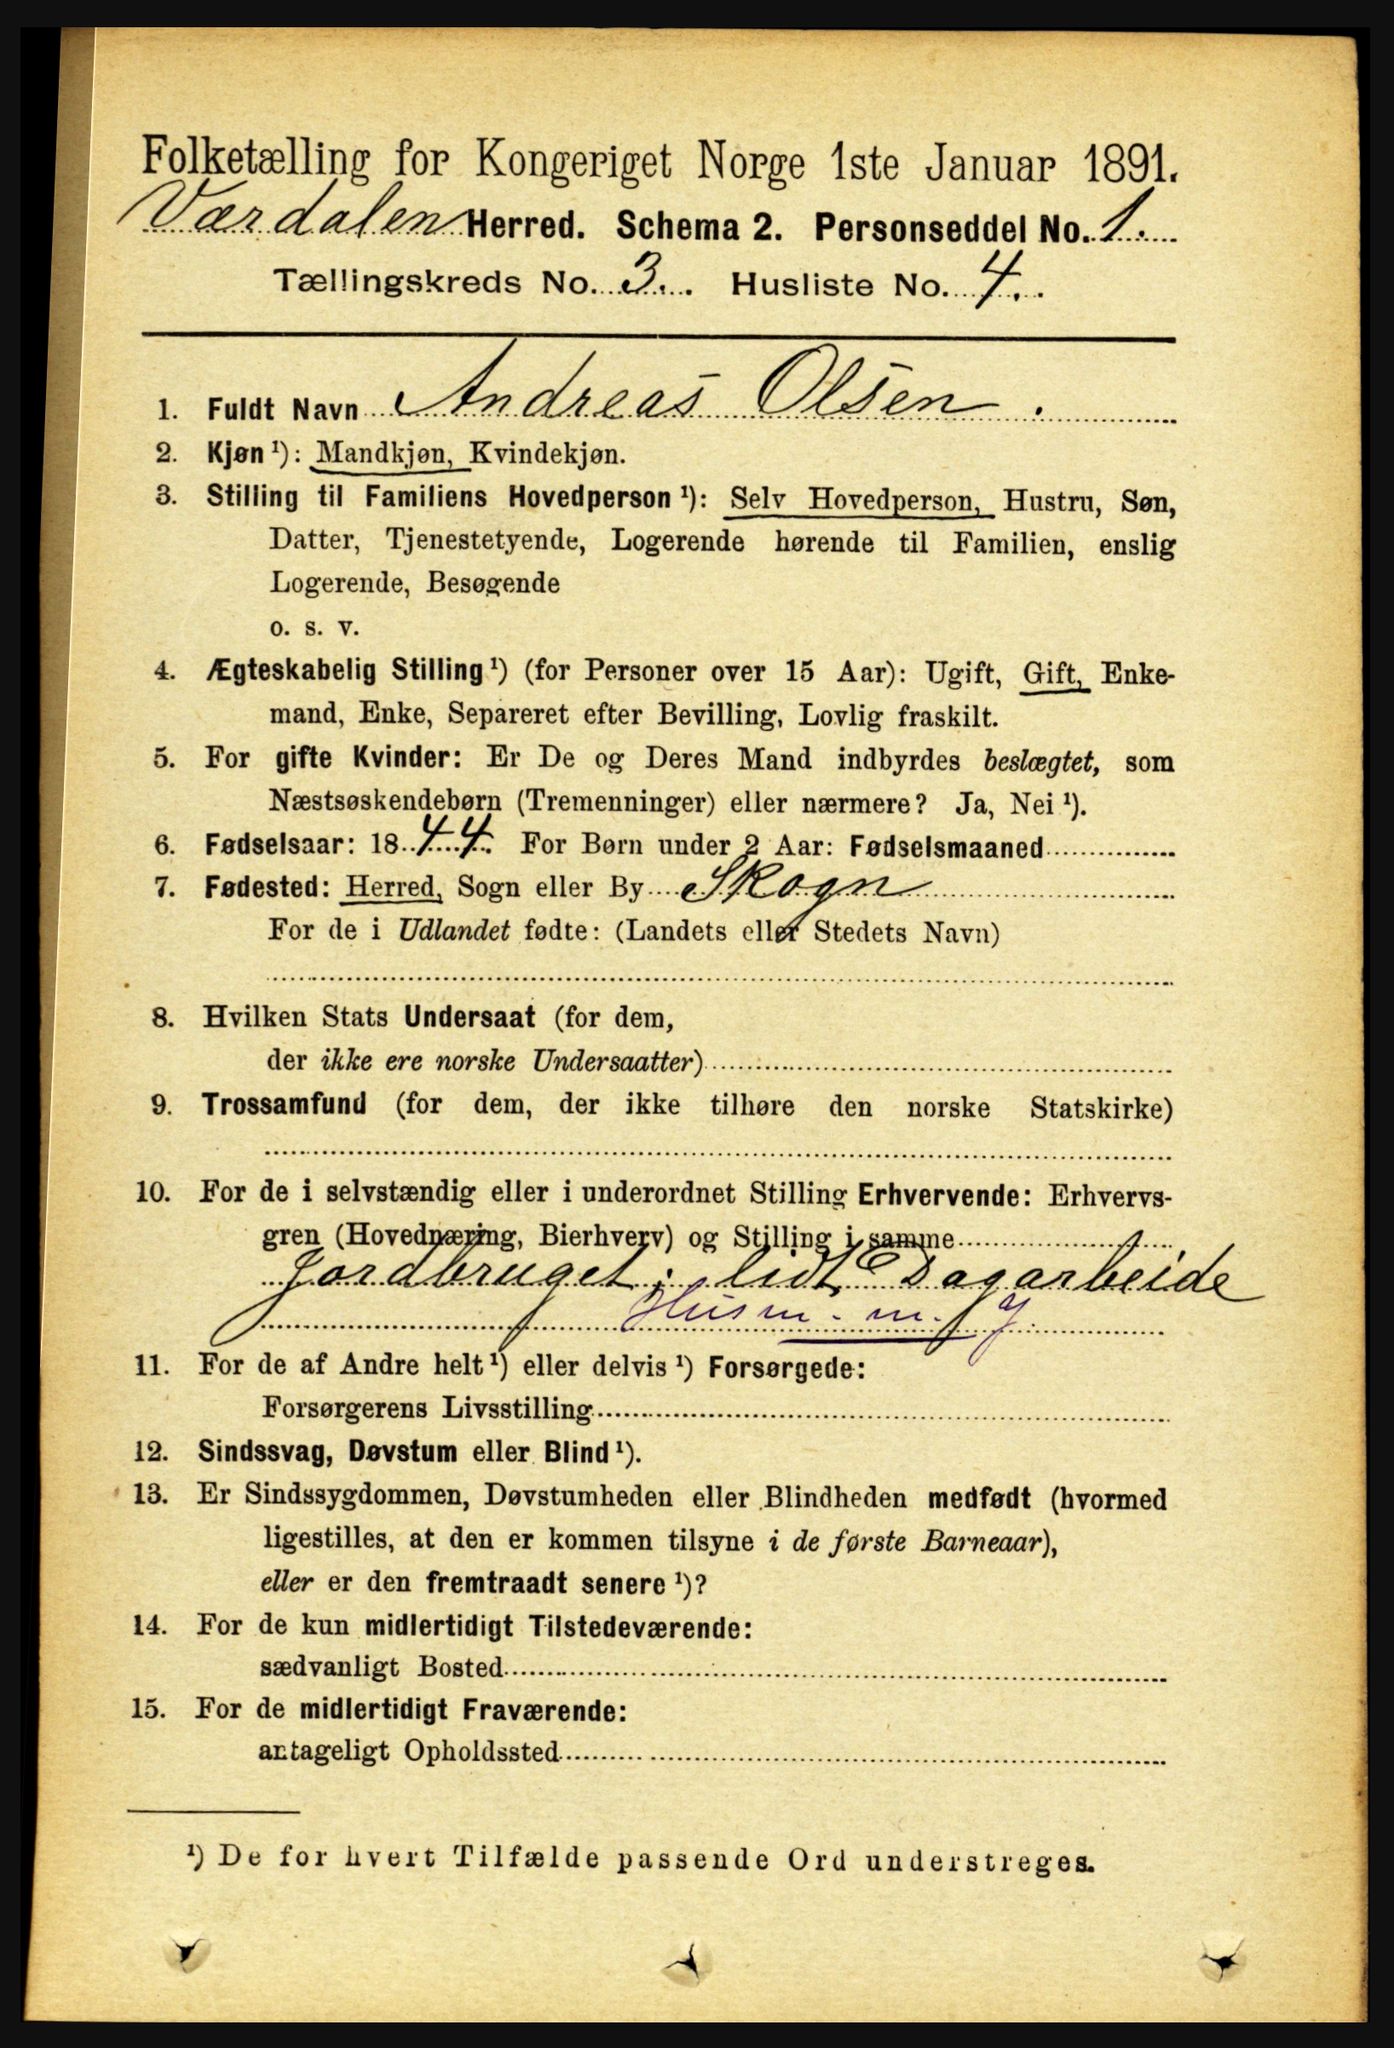 Folketælling for Kongeriget Norge 1ste Januar 1891.
Værdalen Herred. Schema 2. Personseddel No. 1.
Tællingskreds No. 3. Husliste No. 4.
1. Fuldt Navn Andreas Olsen.
2. Kjøn ¹): Mandkjøn, Kvindekjøn.
3. Stilling til Familiens Hovedperson ¹): Selv Hovedperson, Hustru, Søn,
Datter, Tjenestetyende, Logerende hørende til Familien, enslig
Logerende, Besøgende
o. s. v.
4. Ægteskabelig Stilling ¹) (for Personer over 15 Aar): Ugift, Gift, Enke-
mand, Enke, Separeret efter Bevilling, Lovlig fraskilt.
5. For gifte Kvinder: Er De og Deres Mand indbyrdes beslægtet, som
Næstsøskendebørn (Tremenninger) eller nærmere? Ja, Nei ¹).
6. Fødselsaar: 1844. For Børn under 2 Aar: Fødselsmaaned
7. Fødested: Herred, Sogn eller By Skogn
For de i Udlandet fødte: (Landets eller Stedets Navn)
8. Hvilken Stats Undersaat (for dem,
der ikke ere norske Undersaatter)
9. Trossamfund (for dem, der ikke tilhøre den norske Statskirke)
10. For de i selvstændig eller i underordnet Stilling Erhvervende: Erhvervs-
gren (Hovednæring, Bierhverv) og Stilling i samme
Jordbruget; lidt Dagarbeide
Husm. m. J.
11. For de af Andre helt ¹) eller delvis ¹) Forsørgede:
Forsørgerens Livsstilling
12. Sindssvag, Døvstum eller Blind ¹).
13. Er Sindssygdommen, Døvstumheden eller Blindheden medfødt (hvormed
ligestilles, at den er kommen tilsyne i de første Barneaar),
eller er den fremtraadt senere ¹)?
14. For de kun midlertidigt Tilstedeværende:
sædvanligt Bosted
15. For de midlertidigt Fraværende:
antageligt Opholdssted
¹) De for hvert Tilfælde passende Ord understreges.